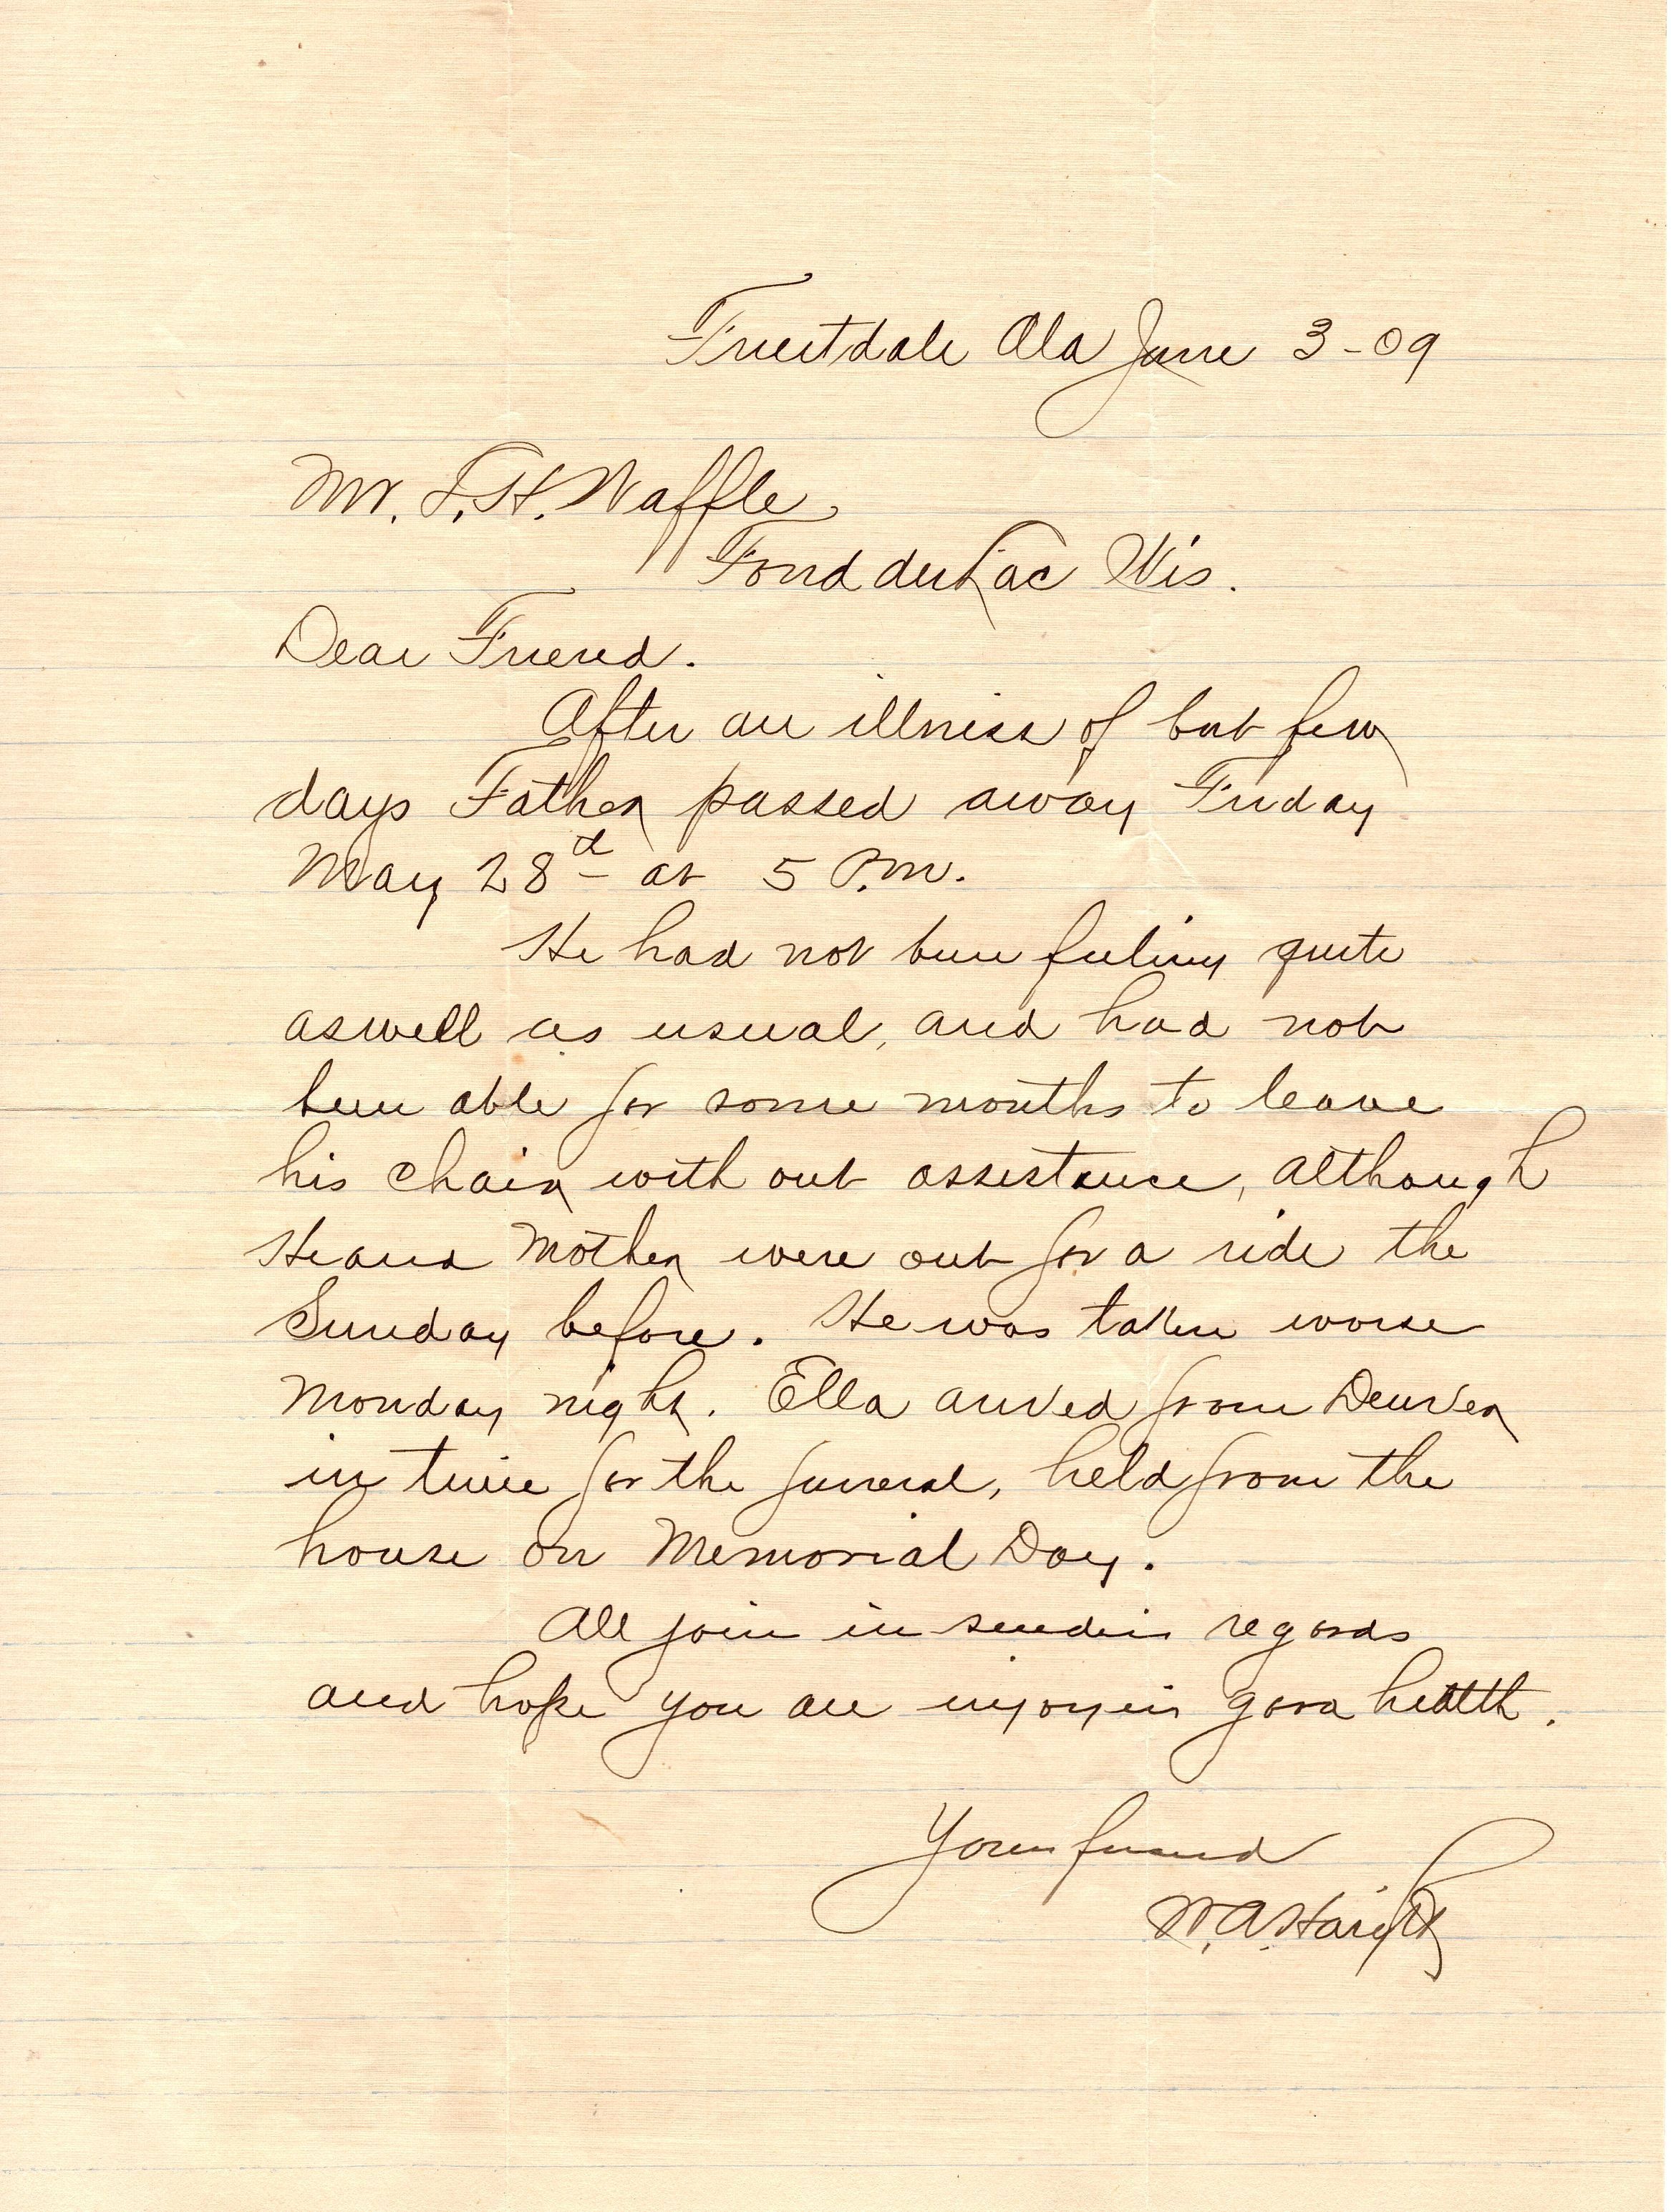 Fruitdale Ala June 3-09
Mr. F. H. Waffle,
Fond du Lac Wis.
Dear Friend.
After an illness of but few
days Father passed away Friday
May 28th at 5 P.M.
He had not been feeling quite
aswell as usual, and had not
been able for some months to leave
his chair with out assistance, although
He and Mother were out for a ride the
Sunday before. He was taken worse
Monday night. Ella arrived from Denver
in time for the funeral, held from the
house on Memorial Day.
All join in sendin regards
and hope you are injoyin good health.
Your friend
W. A. Haight